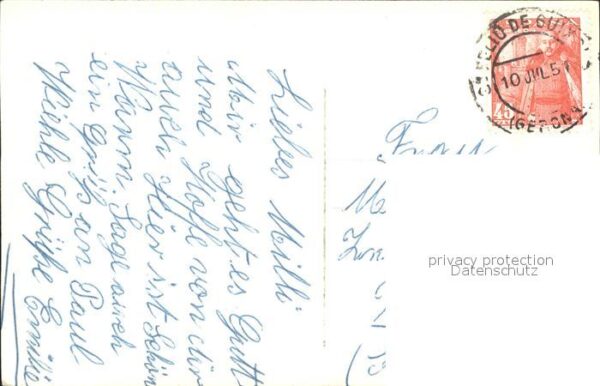 Liebes Milli
Mir geht es Gutt
und Hoffe von dir
auch Hier ist Schön
Warm. Sage auch
ein Grüß an Paul
Grüße Emilie
S. FELIU DE GUIXOLS
10 JUL 51
(GERONA)
45
Frau
privacy protection
Datenschutz